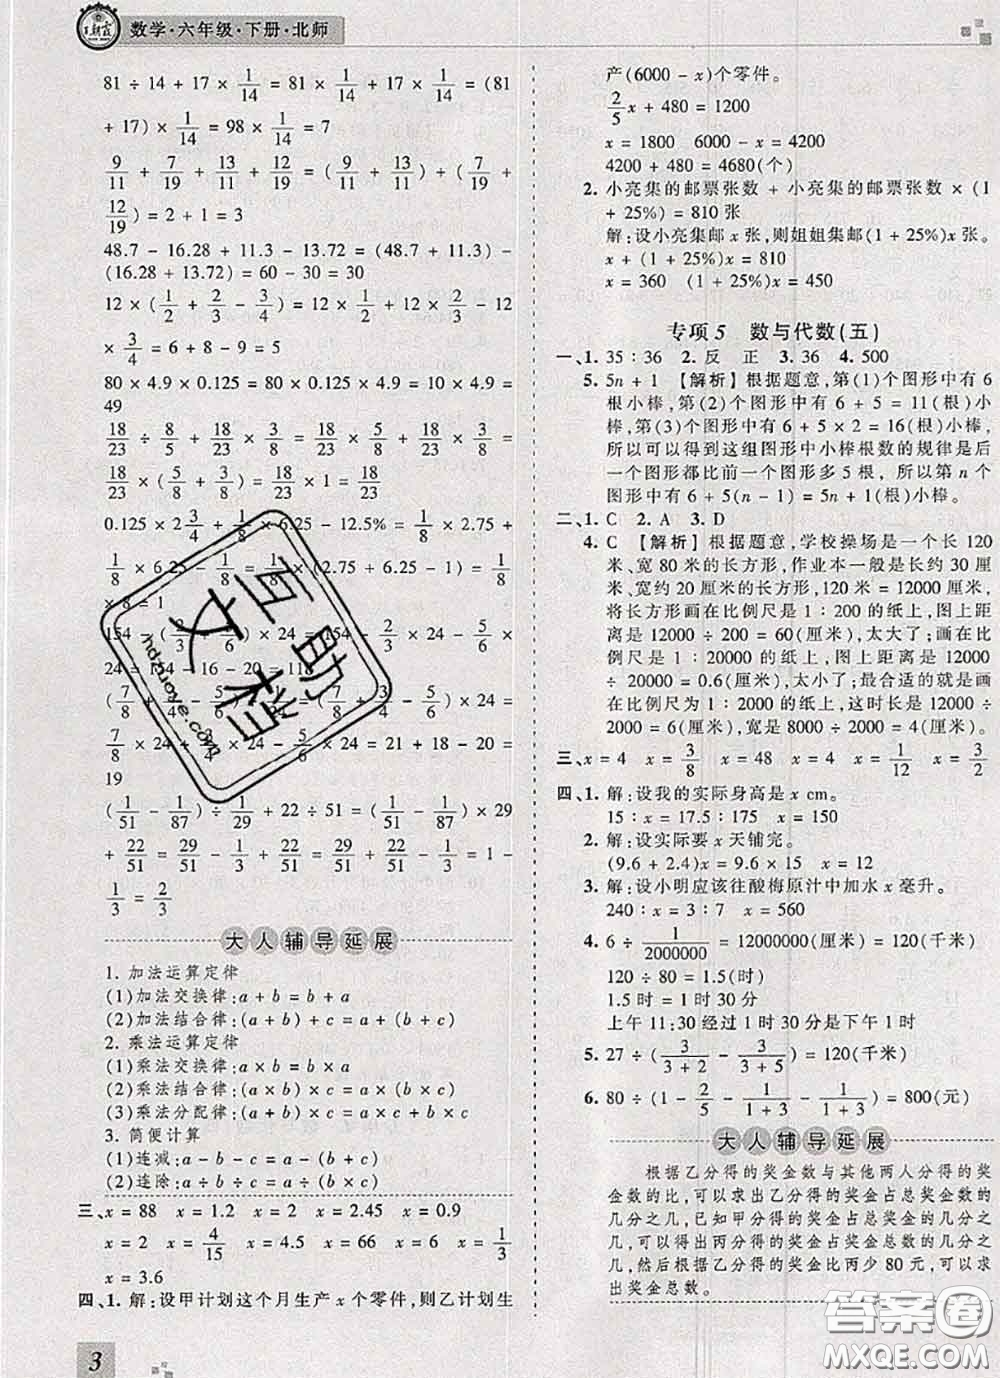 王朝霞
数学·六年级·下册·北师
81 ÷ 14 + 17 × 1/14 = 81 × 1/14 + 17 × 1/14 = (81
+ 17) × 1/14 = 98 × 1/14 = 7
9/11 + 7/19 + 13/11 + 12/19 = (9/11 + 13/11) + (7/19 +
12/19) = 2 + 1 = 3
48.7 - 16.28 + 11.3 - 13.72 = (48.7 + 11.3) -
(16.28 + 13.72) = 60 - 30 = 30
12 × (1/2 + 2/3 - 3/4) = 12 × 1/2 + 12 × 2/3 - 12
× 3/4 = 6 + 8 - 9 = 5
80 × 4.9 × 0.125 = 80 × 0.125 × 4.9 = 10 × 4.9 =
49
18/23 ÷ 8/5 + 18/23 × 3/8 = 18/23 × 5/8 + 18/23 × 3/8 =
18/23 × (5/8 + 3/8) = 18/23 × 1 = 18/23
0.125 × 2 3/4 + 1/8 × 6.25 - 12.5% = 1/8 × 2.75 +
1/8 × 6.25 - 1/8 = 1/8 × (2.75 + 6.25 - 1) = 1/8
× 8 = 1
154 - (2/3 + 5/6) × 24 = 154 - 2/3 × 24 - 5/6
× 24 = 154 - 16 - 20 = 118
(7/8 + 3/4 - 5/6) ÷ 1/24 = (7/8 + 3/4 - 5/6) × 24 =
7/8 × 24 + 3/4 × 24 - 5/6 × 24 = 21 + 18 - 20 =
19
(1/51 - 1/87) ÷ 1/29 + 22 ÷ 51 = (1/51 - 1/87) × 29
+ 22/51 = 29/51 - 1/3 + 22/51 = 29/51 + 22/51 - 1/3 = 1 -
1/3 = 2/3
大人辅导延展
1. 加法运算定律
(1)加法交换律:a + b = b + a
(2)加法结合律:(a + b) + c = a + (b + c)
2. 乘法运算定律
(1)乘法交换律:a × b = b × a
(2)乘法结合律:(a × b) × c = a × (b × c)
(3)乘法分配律:(a + b) × c = a × c + b × c
3. 简便计算
(1)连减:a - b - c = a - (b + c)
(2)连除:a ÷ b ÷ c = a ÷ (b × c)
三、x = 88 x = 1.2 x = 2 x = 2.45 x = 0.9
x = 2 x = 4/15 x = 4.5 x = 66 x = 6 x = 1/3
x = 3.6
四、1. 解:设甲计划这个月生产 x 个零件,则乙计划生
产(6000 - x)个零件。
2/5 x + 480 = 1200
x = 1800 6000 - x = 4200
4200 + 480 = 4680(个)
2. 小亮集的邮票张数 + 小亮集的邮票张数 × (1
+ 25%) = 810 张
解:设小亮集邮 x 张,则姐姐集邮(1 + 25%)x 张。
x + (1 + 25%)x = 810
x = 360 (1 + 25%)x = 450
专项 5 数与代数(五)
一、1. 35 : 36 2. 反 正 3. 36 4. 500
5. 5n + 1 【解析】根据题意,第(1)个图形中有 6
根小棒,第(2)个图形中有 6 + 5 = 11(根)小
棒,第(3)个图形中有 6 + 5 × 2 = 16(根)小棒,
所以可以得到这组图形中小棒根数的规律是后
一个图形都比前一个图形多 5 根, 所以第 n 个
图形中共有 6 + 5(n - 1) = 5n + 1(根)小棒。
二、1. C 2. A 3. D
4. C 【解析】根据题意,学校操场是一个长 120
米、宽 80 米的长方形,作业本一般是长约 30 厘
米、宽约 20 厘米的长方形,120 米 = 12000 厘米,
将长方形画在比例尺是 1 : 200 的纸上,图上距
离是 12000 ÷ 200 = 60(厘米),太大了;画在比例
尺是 1 : 20000 的纸上,图上距离是 12000 ÷
20000 = 0.6(厘米),太小了;最合适的就是画在
比例尺为 1 : 2000 的纸上,这时长是 12000 ÷
2000 = 6(厘米),宽是 8000 ÷ 2000 = 4(厘米)。
三、x = 4 x = 3/8 x = 48 x = 4 x = 1/12 x = 3/2
四、1. 解:设我的实际身高是 x cm。
15 : x = 17.5 : 175 x = 150
2. 解:设实际要 x 天铺完。
(9.6 + 2.4)x = 9.6 × 15 x = 12
3. 解:设小明应该往酸梅原汁中加水 x 毫升。
240 : x = 3 : 7 x = 560
4. 6 ÷ 1/2000000 = 12000000(厘米) = 120(千米)
120 ÷ 80 = 1.5(时)
1.5 时 = 1 时 30 分
上午 11:30 经过 1 时 30 分是下午 1 时
5. 27 ÷ (3/(3 + 2) - 3/(3 + 5)) = 120(千米)
6. 80 ÷ (1 - 2/5 - 1/(1 + 3) - 1/(1 + 3)) = 800(元)
大人辅导延展
根据乙分得的奖金数与其他两人分得的奖
金数的比,可以求出乙分得的奖金占总奖金数的
几分之几,已知甲分得的奖金占总奖金的几分之
几,可以得出丙分得的奖金占奖金总数的几分之
几,然后根据乙分得的奖金比丙少 80 元,可以求
出奖金总数。
3
互助文档
hdhuoye.com
答案圈
MXQE.COM